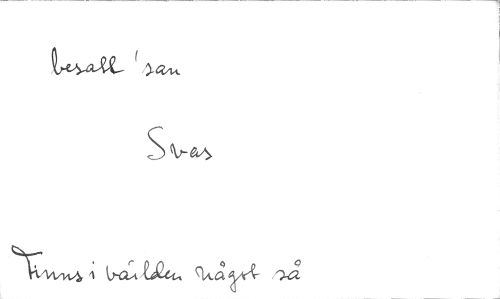 besatt 'san
Svas
Finns i världen något så